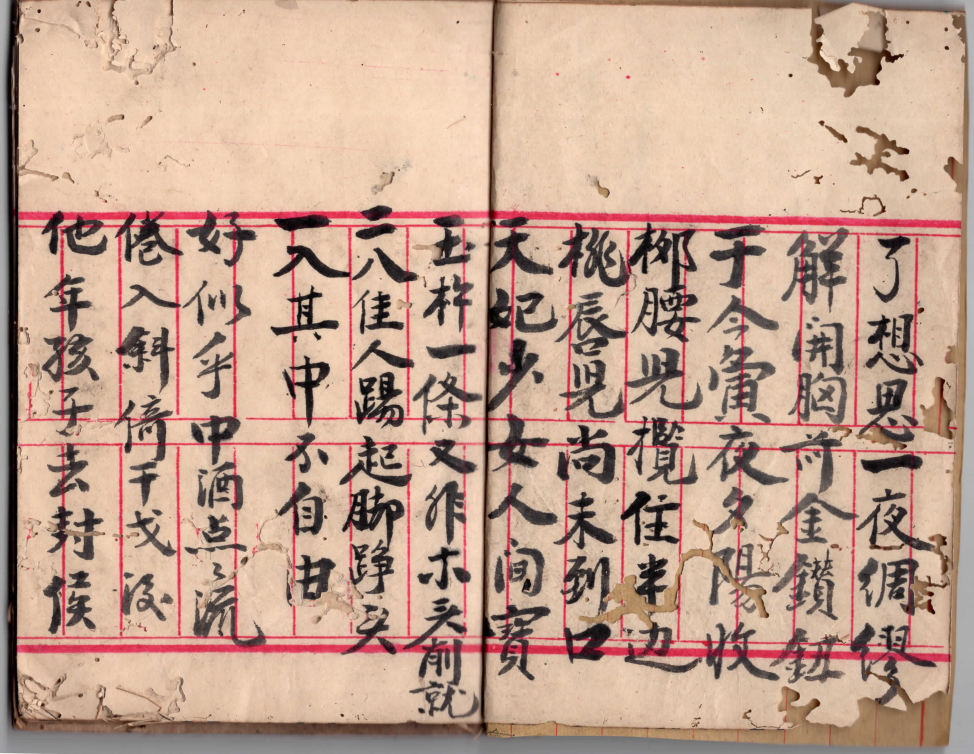 了想思一夜綢繆
解開胸前金鑚鈕
于今夤夜夕陽收
柳腰兒攬住半边
桃唇兒尚未到口
天妃少女人间寳
五杵一條又非木头削就
二八佳人踢起脚踭头
一入其中不自由
好似乎中酒点〻流
倦入斜倚干戈後
他年孩子去封侯